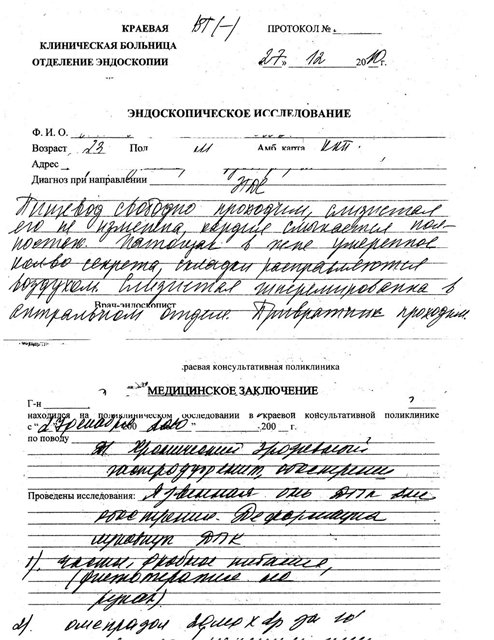 КРАЕВАЯ ВТ(-) ПРОТОКОЛ №
КЛИНИЧЕСКАЯ БОЛЬНИЦА
ОТДЕЛЕНИЕ ЭНДОСКОПИИ „27" 12 2010 г.
ЭНДОСКОПИЧЕСКОЕ ИССЛЕДОВАНИЕ
Ф. И. О.
Возраст 23 Пол м Амб. карта
Адрес
Диагноз при направлении
Пищевод свободно проходим, слизистая
его не изменена, кардия смыкается пол-
ностью. Натощак в жел умеренное
кол-во секрета, складки расправляются
воздухом. Слизистая гиперемирована в
Врач-эндоскопист
антральном отделе. Привратник проходим.
раевая консультативная поликлиника
МЕДИЦИНСКОЕ ЗАКЛЮЧЕНИЕ
Г-н
находился на поликлиническом обследовании в краевой консультативной поликлинике
с " декабря 2010 200 г.
по поводу
Хронический эрозивный
гастродуоденит, обострение
Проведены исследования: Язвенная бль ДПК вне
обострения. Деформация
луковицы ДПК
1). Частое, дробное питание,
(фитотерапия на
руках).
2) омепразол 20мг х 2р за